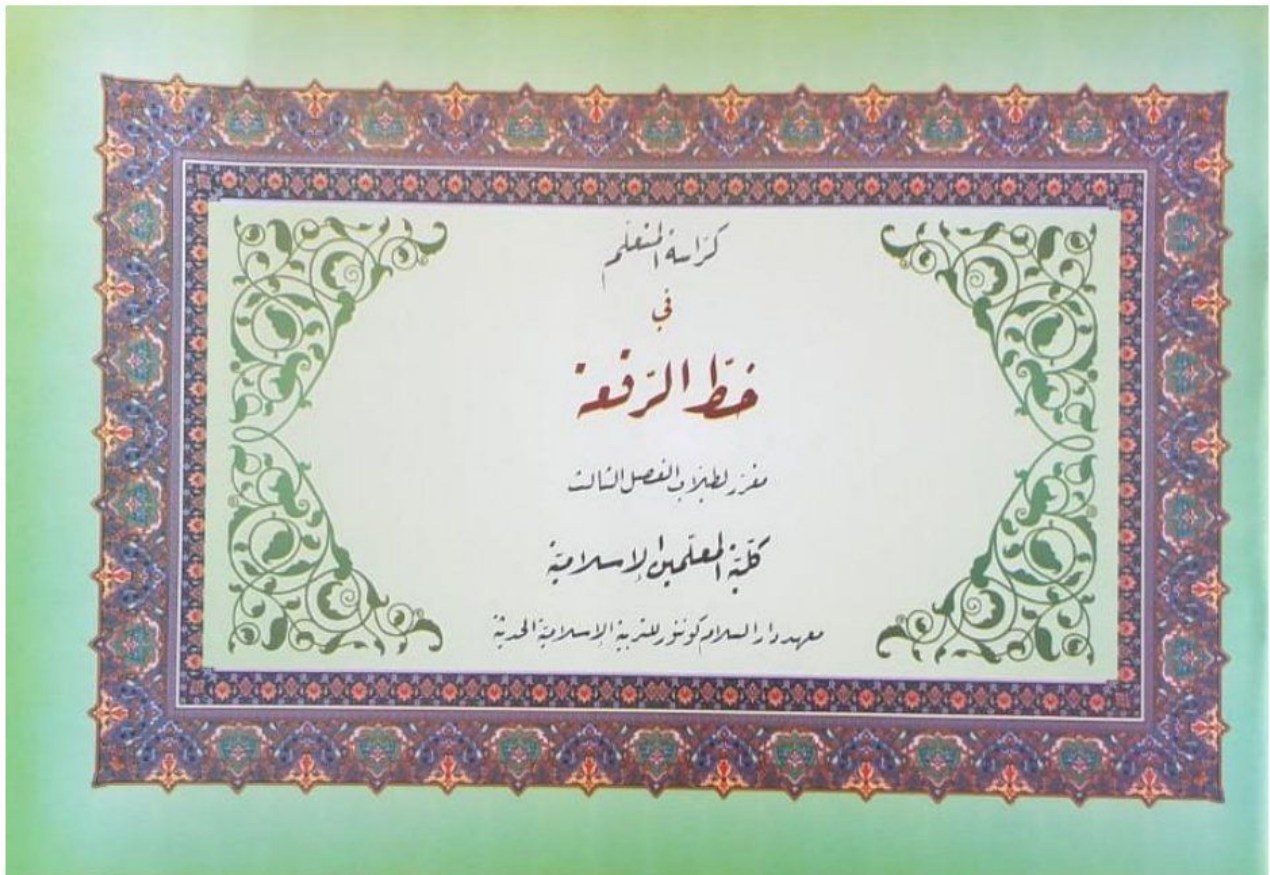 كرّاسة المتعلّم
في
خطّ الرّقعة
مقرّر لطلاب الفصل الثالث
كلّيّة المعلّمين الإسلاميّة
معهد دار السلام كونتور للتربية الإسلامية الحديثة